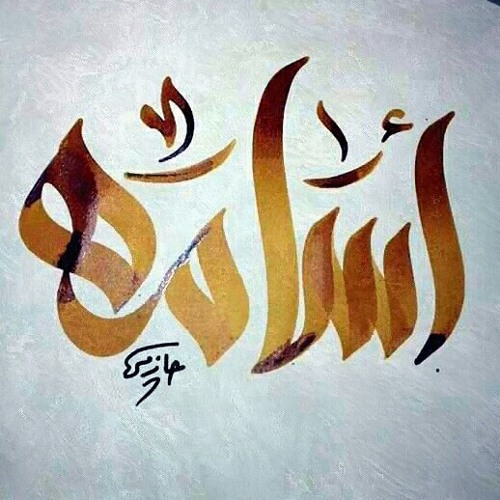 أسامه